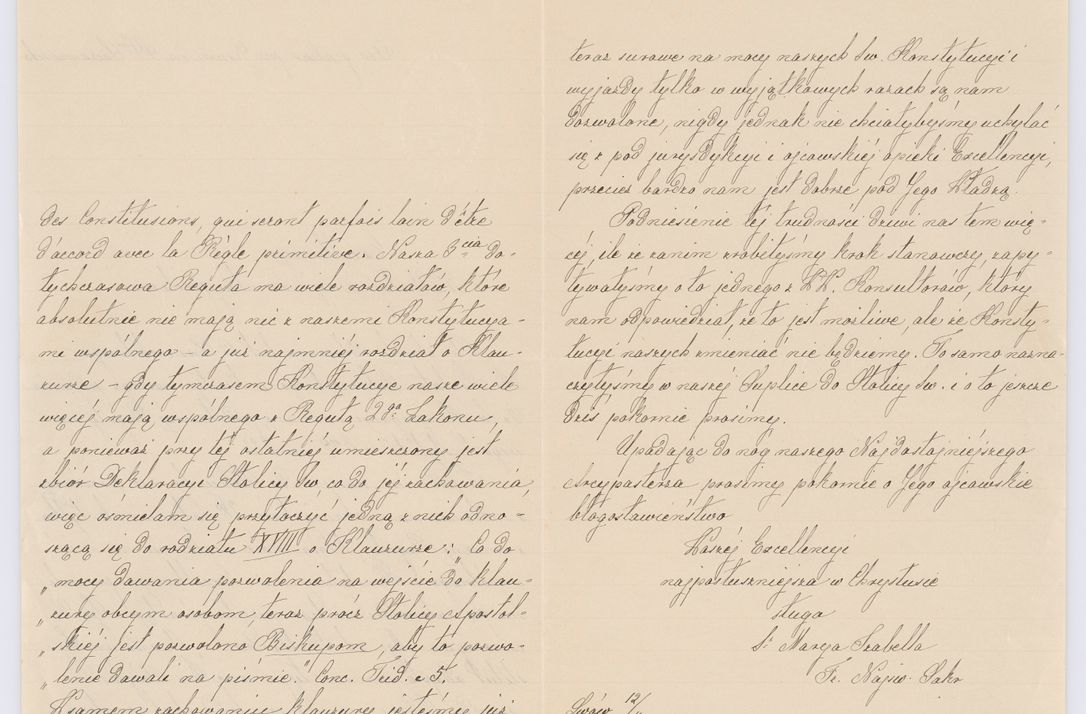 des Constitusions, qui seront parfois loin d'être
d'accord avec la Règle primitive. Nasza 3cia do-
tychczasowa Reguła ma wiele rozdziałów, które
absolutnie nie mają nic z naszemi Konstytucya-
mi wspólnego – a już najmniej rozdział o Klau-
zurze – gdy tymczasem Konstytucye nasze wiele
więcéj mają wspólnego z Regułą 2go Zakonu,
a ponieważ przy téj ostatniéj umieszczony jest
zbiór Deklaracyi Stolicy Św. co do jéj zachowania,
więc ośmielam się przytoczyć jedną z nich odno-
szącą się do rodziału XVIII o Klauzurze: "Co do
"mocy dawania pozwolenia na wejście do klau-
"zury obcym osobom, teraz prócz Stolicy Apostol-
"skiéj jest pozwolono Biskupom, aby to pozwo-
"lenie dawali na piśmie." Conc. Trid. c 5.
W samem zachowaniu klauzury jesteśmy już
teraz surowe na mocy naszych Św. Konstytucyi i
wyjazdy tylko w wyjątkowych razach są nam
dozwolone, nigdy jednak nie chciałybyśmy uchylać
się z pod jurysdykcyi i ojcowskiéj opieki Excellencyi,
przecież bardzo nam jest dobrze pod Jego Władzą.
Podniesienie téj trudności dziwi nas tem wię-
céj, ile że zanim zrobiłyśmy krok stanowczy, zapy-
tywałyśmy o to jednego z WW. Konsultorów, który
nam odpowiedział, że to jest możliwe, ale że Konsty-
tucyi naszych zmieniać nie będziemy. To samo zazna-
czyłyśmy w naszéj Suplice do Stolicy Św. i o to jeszcze
dziś pokornie prosimy.
Upadając do nóg naszego Najdostojniéjszego
Arcypasterza, prosimy pokornie o Jego ojcowskie
błogosławieństwo
Waszéj Excellencyi
najposłuszniejsza w Chrystusie
sługa
S. Marya Izabella
Fr. Najśw. Sakr
Lwów 12/